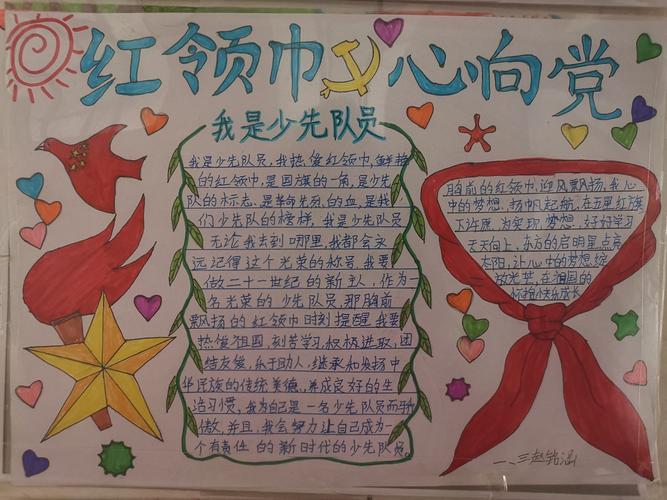 红领巾心向党
我是少先队员
我是少先队员,我热爱红领巾,鲜艳
的红领巾,是国旗的一角,是少先
队的标志、是革命先烈的血,是我
们少先队的榜样,我是少先队员
无论我去到哪里,我都会永
远记得这个光荣的称号.我要
做二十一世纪的新主人,作为一
名光荣的少先队员.那胸前
飘扬的红领巾时刻提醒我要
热爱祖国,刻苦学习,积极进取,团
结友爱,乐于助人,继承和发扬中
华民族的传统美德、养成良好的生
活习惯,我为自己是一名少先队员而骄
傲,并且,我会努力让自己成为一
个有责任的新时代的少先队员。
胸前的红领巾,迎风飘扬,我心
中的梦想,扬帆起航,在五星红旗
下许愿,为实现梦想,好好学习
天天向上,东方的启明星点亮
太阳,让心中的梦想绽
放光芒,在祖国的
怀抱快乐成长
一、三赵铭涵